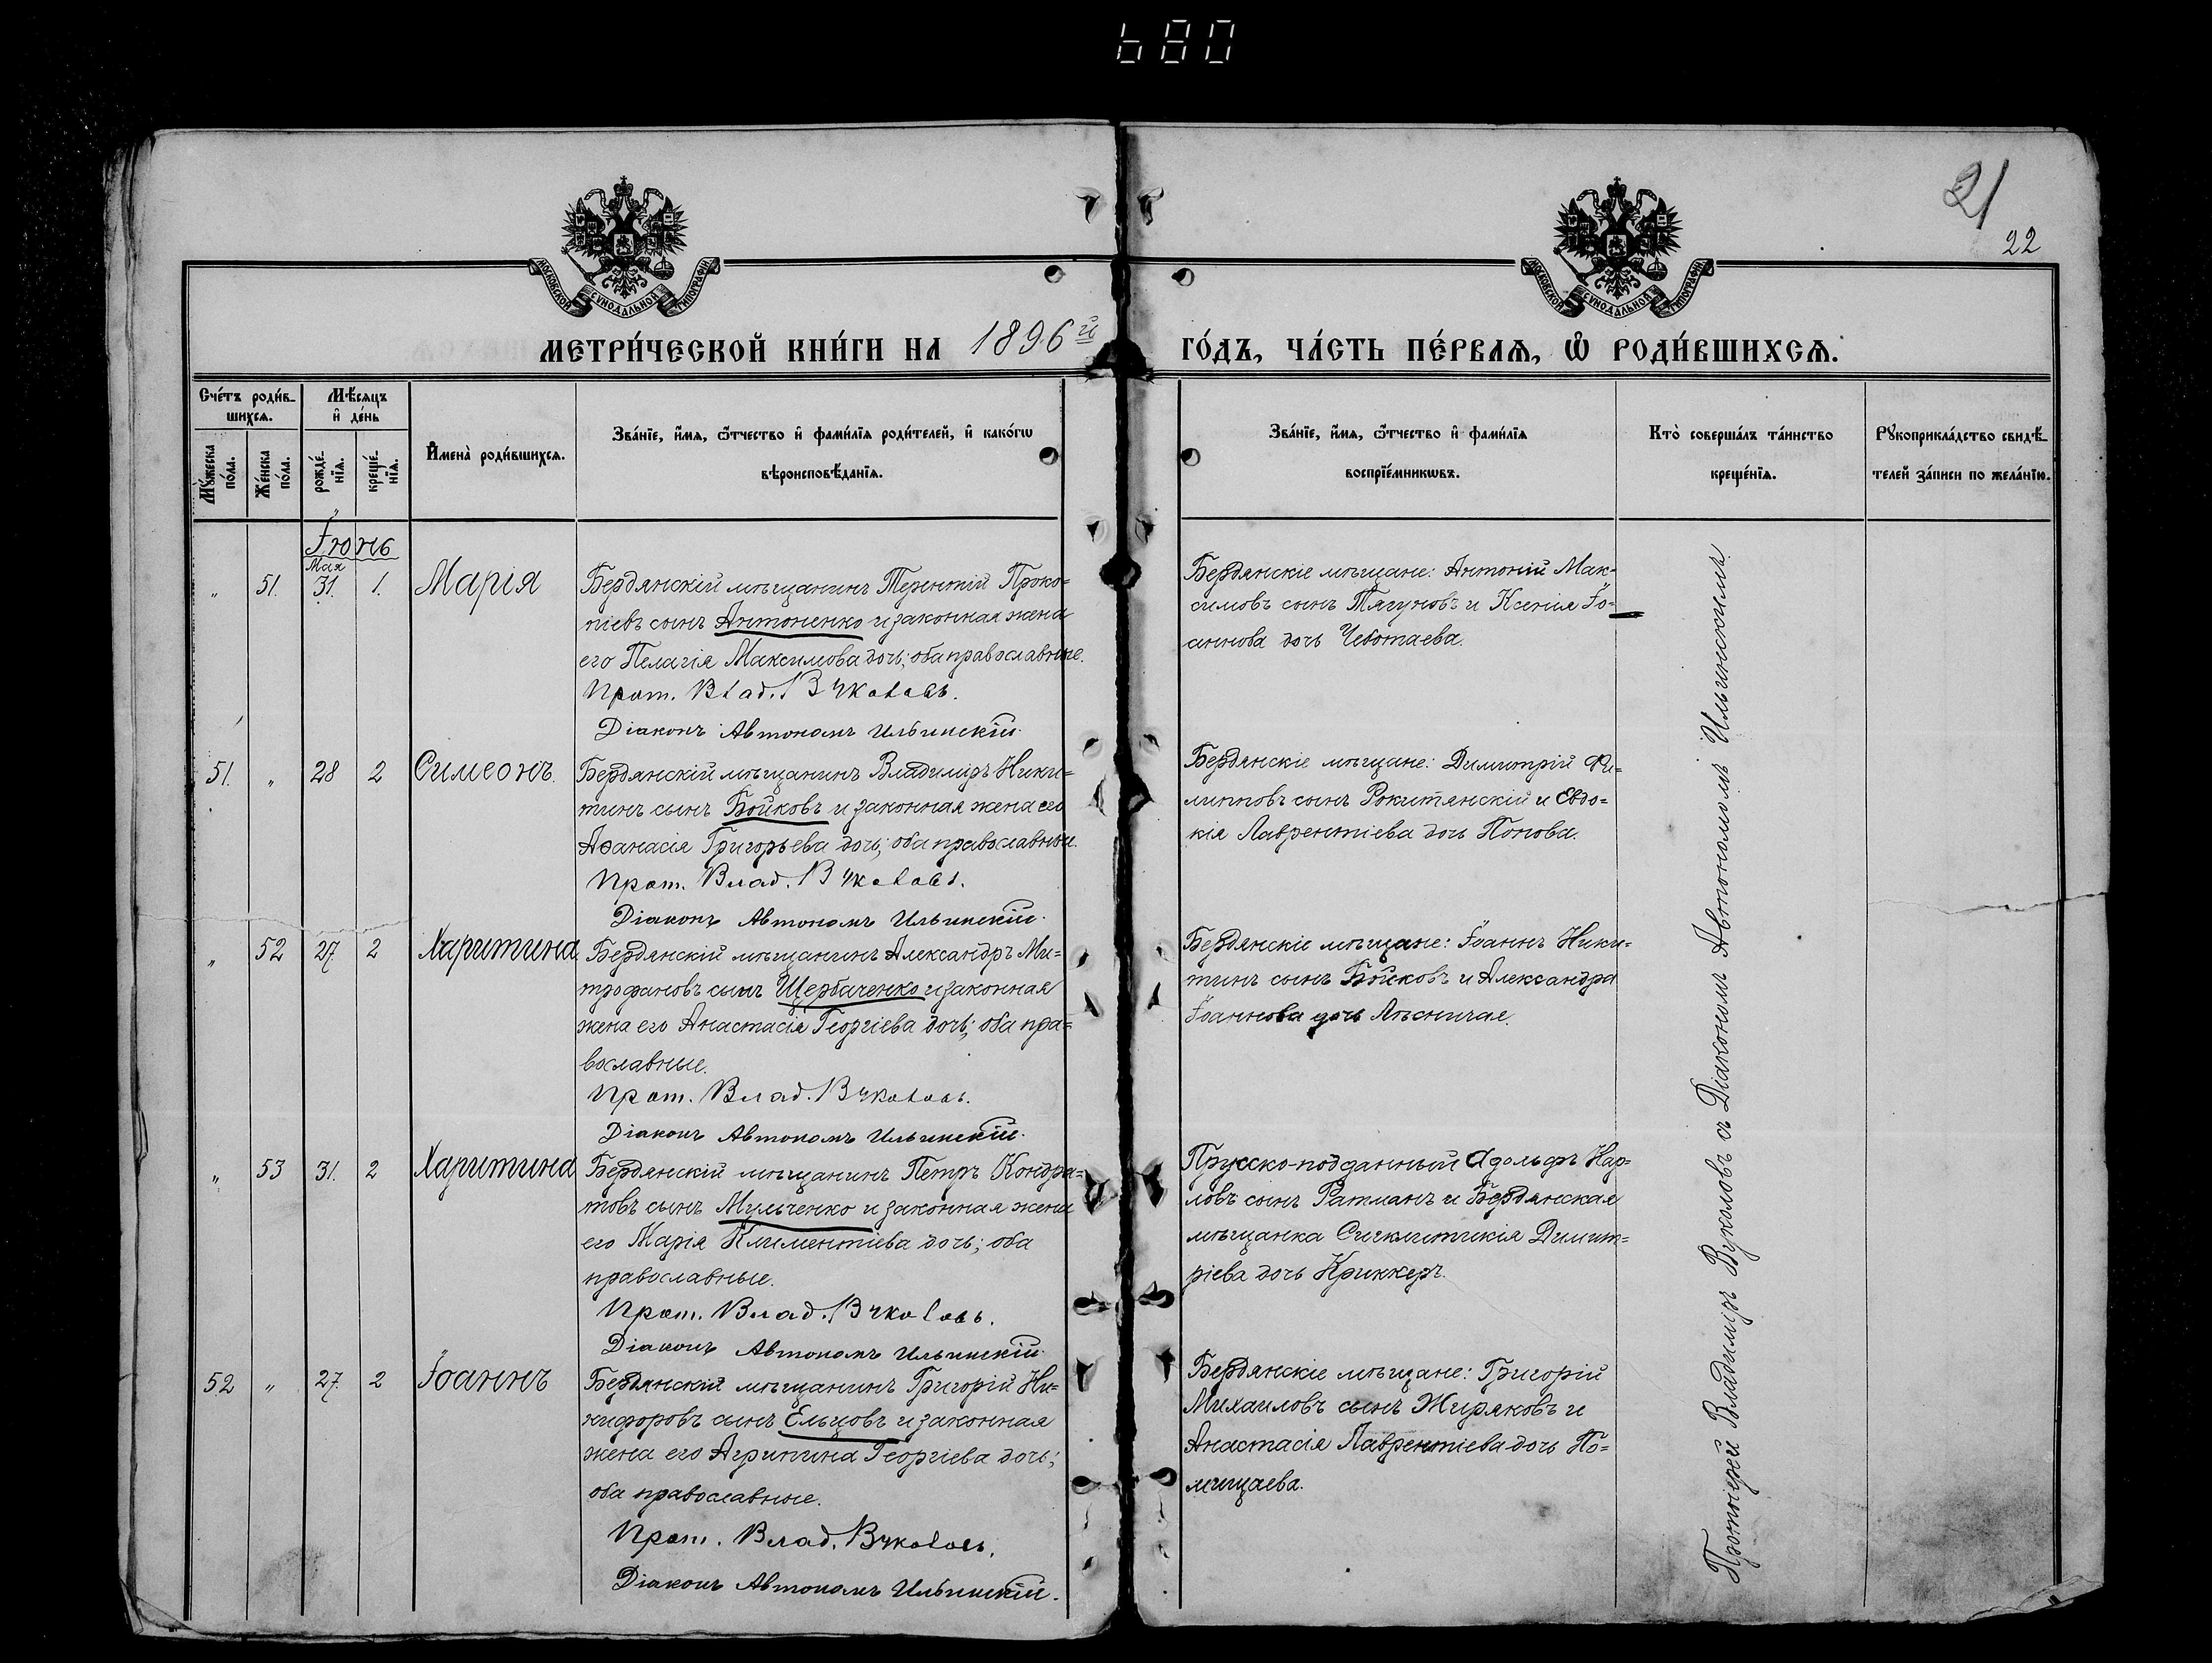 680
21
22
МОСКОВСКОЙ СѴНОДАЛЬНОЙ ТИПОГРАФІИ
МОСКОВСКОЙ СѴНОДАЛЬНОЙ ТИПОГРАФІИ
МЕТРИ́ЧЕСКОЙ КНИ́ГИ НА 1896й ГО́ДЪ, ЧА́СТЬ ПЕ́РВАЯ, Ѡ РОДИ́ВШИХСЯ.
Сче́тъ роди́в-
шихся.
Мѣ́сяцъ
и҆ де́нь
Му́жеска по́ла.
Же́нска по́ла.
рожде́нїя.
креще́нїя.
И҆мена̀ роди́вшихся.
Зва́нїе, и҆́мя, ѻ҆́тчество и҆ фами́лїя роди́телей, и҆ како́гѡ
вѣроисповѣ́данїя.
Зва́нїе, и҆́мя, ѻ҆́тчество и҆ фами́лїя
воспрїе́мникѡвъ.
Кто̀ соверша́лъ та́инство
креще́нїя.
Рꙋкоприкла́дство свидѣ́-
телей за́писи по жела́нїю.
Іюнь
Мая
„ 51. 31. 1. Марія
Бердянскій мѣщанинъ Терентій Проко=
піевъ сынъ Антоненко и законная жена
его Пелагія Максимова дочь; оба православные.
Прот. Влад. Вуколовъ.
Діаконъ Автономъ Ильинскій.
Бердянскіе мѣщане: Антоній Мак-
симовъ сынъ Тягуновъ и Ксенія Іо-
аннова дочь Чеботаева.
51. „ 28 2 Симеонъ.
Бердянскій мѣщанинъ Владиміръ Ники=
тинъ сынъ Бойковъ и законная жена его
Аѳанасія Григорьева дочь; оба православные.
Прот. Влад. Вуколовъ.
Діаконъ Автономъ Ильинскій.
Бердянскіе мѣщане: Димитрій Фи-
липповъ сынъ Рокитянскій и Евдо=
кія Лаврентіева дочь Попова.
„ 52 27. 2 Харитина
Бердянскій мѣщанинъ Александръ Ми=
трофановъ сынъ Щербаченко и законная
жена его Анастасія Георгіева дочь; оба пра=
вославные.
Прот. Влад. Вуколовъ.
Діаконъ Автономъ Ильинскій.
Бердянскіе мѣщане: Іоаннъ Ники=
тинъ сынъ Бойковъ и Александра
Іоаннова дочь Лѣсничая.
„ 53 31. 2 Харитина
Бердянскій мѣщанинъ Петръ Кондра=
товъ сынъ Мульченко и законная жена
его Марія Климентіева дочь; оба
православные.
Прот. Влад. Вуколовъ.
Діаконъ Автономъ Ильинскій.
Прусско-подданный Адольфъ Кар=
ловъ сынъ Ратманъ и Бердянская
мѣщанка Сигклитикія Димит=
ріева дочь Криккеръ.
52 „ 27. 2 Іоаннъ
Бердянскій мѣщанинъ Григорій Ни=
кифоровъ сынъ Ельцовъ и законная
жена его Агрипина Георгіева дочь;
оба православные.
Прот. Влад. Вуколовъ.
Діаконъ Автономъ Ильинскій.
Бердянскіе мѣщане: Григорій
Михаиловъ сынъ Жиряковъ и
Анастасія Лаврентіева дочь По=
мищаева.
Протоіерей Владиміръ Вуколовъ съ Діакономъ Автономомъ Ильинскимъ